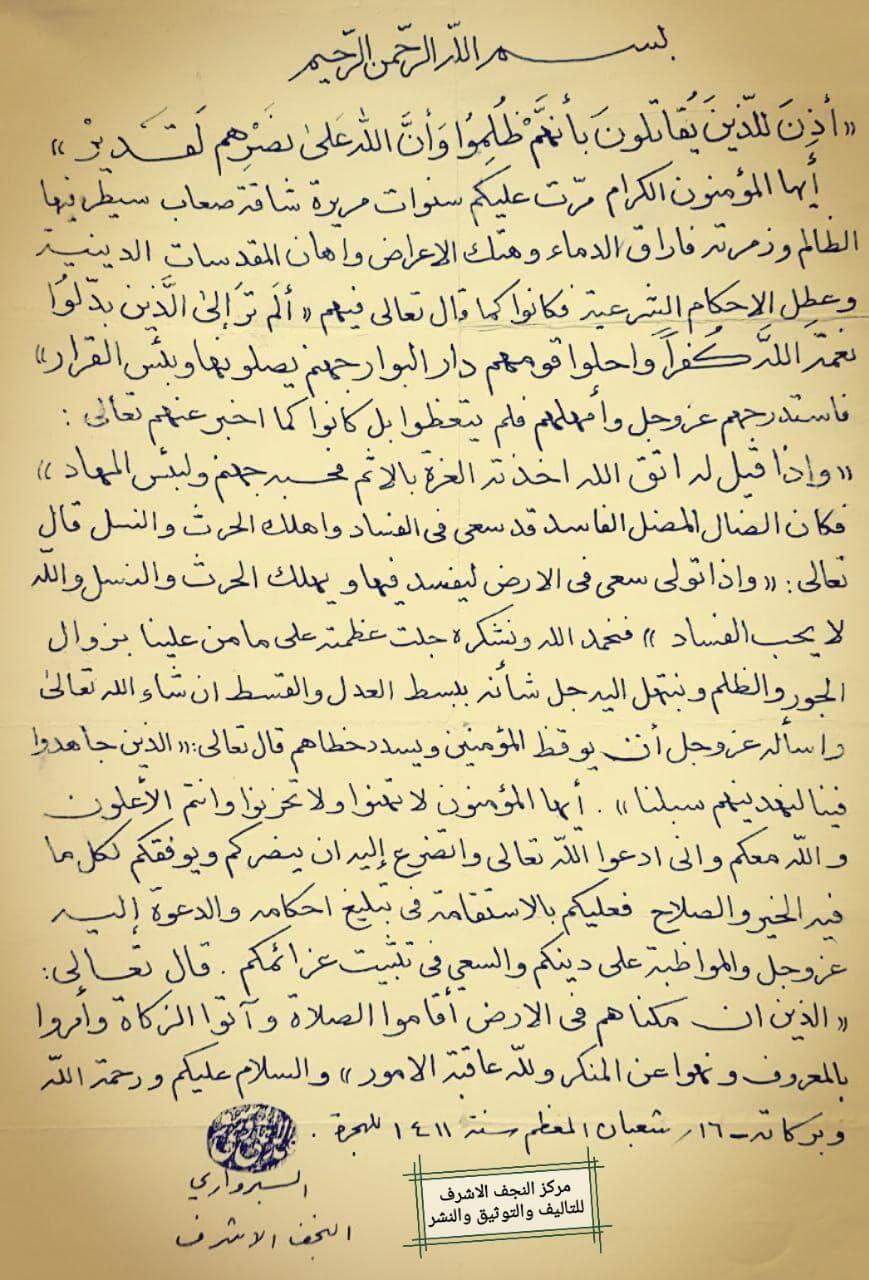 بسم الله الرحمن الرحيم
«أُذِنَ للّذينَ يُقاتلونَ بأنهَّمْ ظُلِموُا وَأنَّ اللهَ عَلىٰ نصَْرِهم لَقَديرْ»
أيها المؤمنون الكرام مرّت عليكم سنوات مريرة شاقة صعاب سيطر فيها
الظالم وزمرته فاراق الدماء وهتك الاعراض واهان المقدسات الدينية
وعطل الاحكام الشرعية فكانوا كما قال تعالى فيهم «ألَم ترَ إلىٰ الَّذين بدّلوُا
نعمةَ اللهَّ كُفراً وَاحلوا قومهم دار البوار جهنم يصلونها وبئس القرار»
فاستدرجهم عز وجل وأمهلهم فلم يتعظوا بل كانوا كما اخبر عنهم تعالى :
«وإذا قيل له اتق الله اخذته العزة بالاثم فحسبه جهنم ولبئس المهاد»
فكان الضال المضل الفاسد قد سعى فى الفساد واهلك الحرث والنسل قال
تعالى : «واذا تولى سعى فى الارض ليفسد فيها ويهلك الحرث والنسل والله
لا يحب الفساد» فنحمد الله ونشكره جلت عظمته على ما من علينا بزوال
الجور والظلم ونبتهل اليه جل شأنه ببسط العدل والقسط ان شاء الله تعالىٰ
واسأله عز وجل أن يوقظ المؤمنين ويسدد خطاهم قال تعالى : «الذين جاهدوا
فينا لنهدينهم سبلنا» . أيها المؤمنون لا تهنوا ولا تحزنوا وانتم الأعلون
والله معكم وانى ادعوا الله تعالى واتضرع إليه ان ينصركم ويوفقكم لكل ما
فيه الخير والصلاح فعليكم بالاستقامة فى تبليغ احكامه والدعوة إليه
عز وجل والمواظبة على دينكم والسعي فى تثبيت عزائمكم . قال تعالى :
«الذين ان مكناهم فى الارض أقاموا الصلاة وآتوا الزكاة وأمروا
بالمعروف ونهوا عن المنكر ولله عاقبة الامور» والسلام عليكم ورحمة الله
وبركاته - ١٦ / شعبان المعظم سنة ١٤١١ للهجرة .
السبزواري
النجف الاشرف
مركز النجف الاشرف
للتاليف والتوثيق والنشر